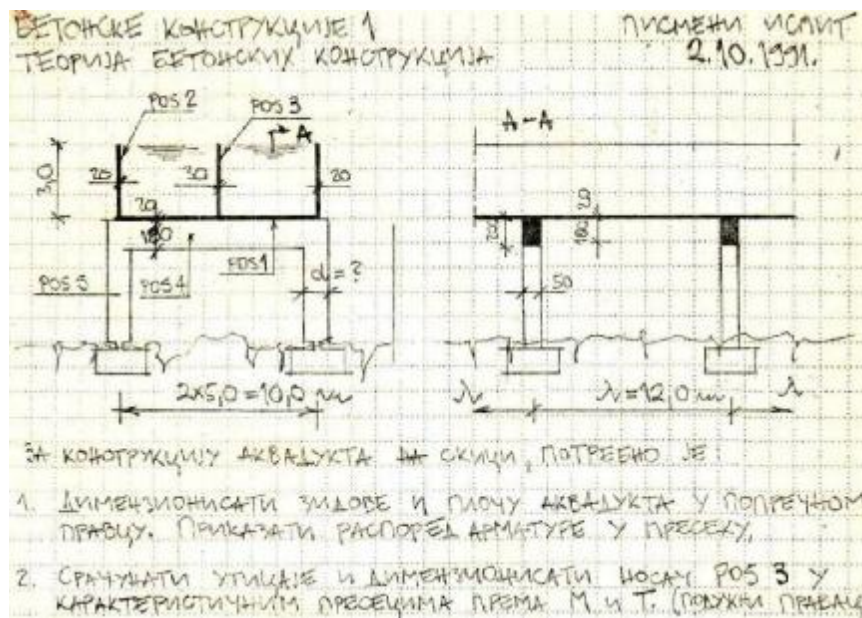 БЕТОНСКЕ КОНСТРУКЦИЈЕ 1
ПИСМЕНИ ИСПИТ
ТЕОРИЈА БЕТОНСКИХ КОНСТРУКЦИЈА
2.10.1991.
POS 2
POS 3
A
A-A
3,0
20
30
20
20
180
20
180
200
d=?
POS 5
POS 4
POS 1
50
2x5,0=10,0 m
λ
λ=12,0 m
λ
ЗА КОНСТРУКЦИЈУ АКВАДУКТА НА СКИЦИ, ПОТРЕБНО ЈЕ:
1. ДИМЕНЗИОНИСАТИ ЗИДОВЕ И ПЛОЧУ АКВАДУКТА У ПОПРЕЧНОМ
ПРАВЦУ. ПРИКАЗАТИ РАСПОРЕД АРМАТУРЕ У ПРЕСЕКУ.
2. СРАЧУНАТИ УТИЦАЈЕ И ДИМЕНЗИОНИСАТИ НОСАЧ POS 3 У
КАРАКТЕРИСТИЧНИМ ПРЕСЕЦИМА ПРЕМА М И Т. (ПОДУЖНИ ПРАВАЦ